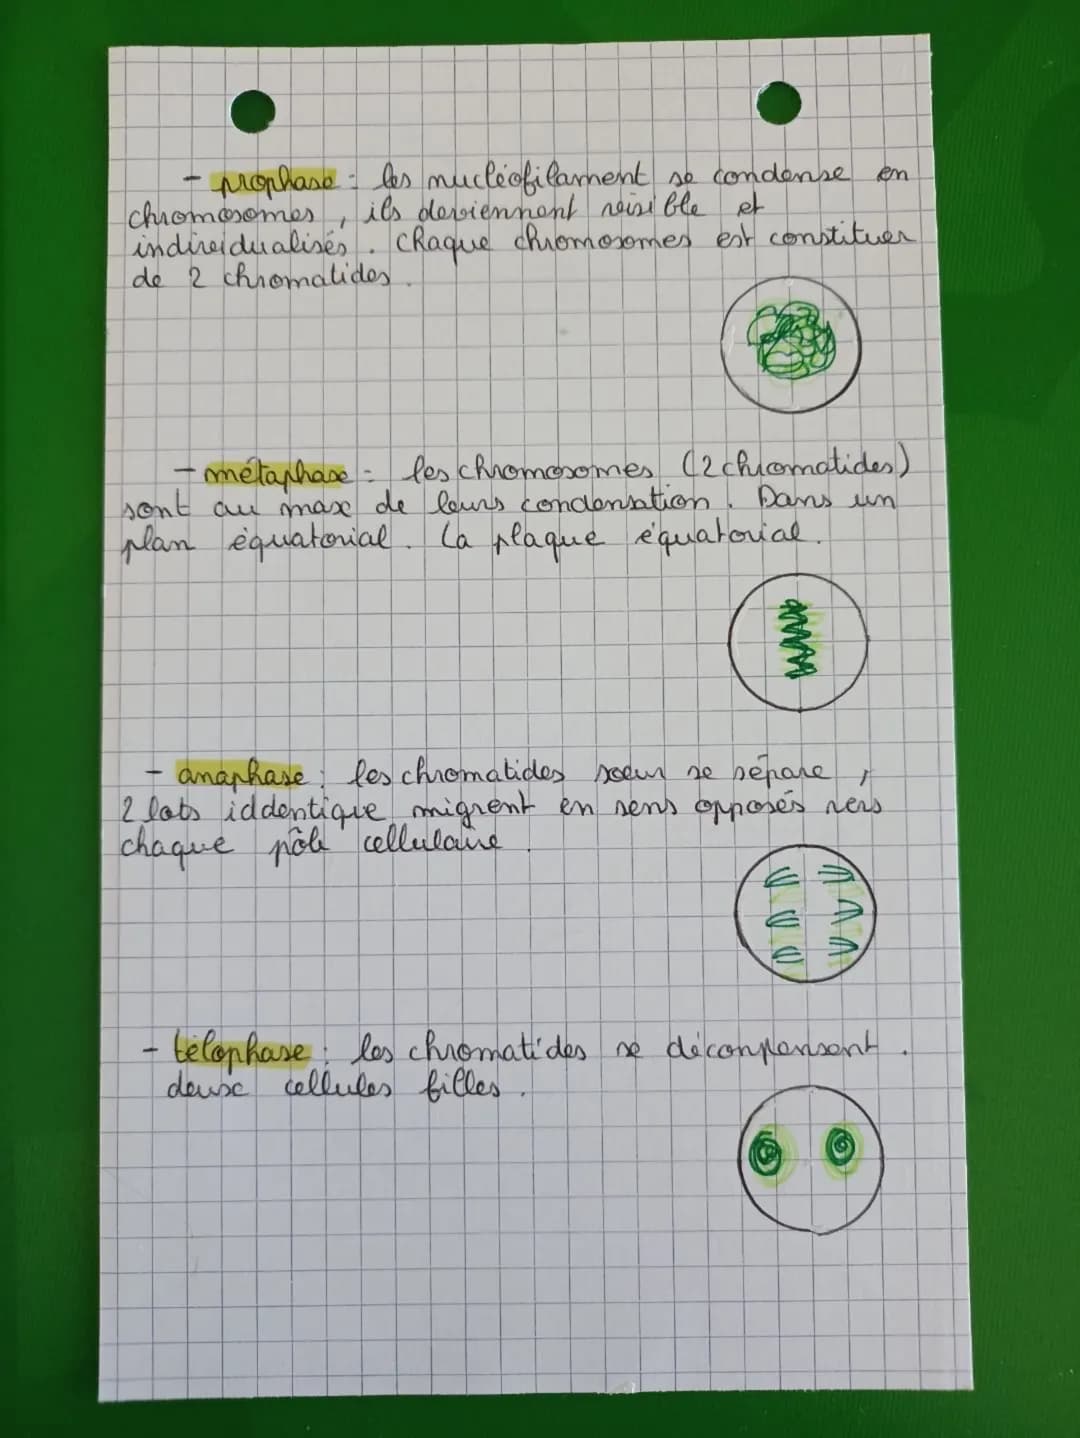 - prophase : les nucléofilament se condense en
chromosomes, ils deviennent visible et
individualisés. Chaque chromosomes est constituer
de 2 chromatides.
- métaphase : les chromosomes (2 chromatides)
sont au max de leurs condensation. Dans un
plan équatorial. La plaque équatorial.
- anaphase : les chromatides soeur se sépare,
2 lots iddentique migrent en sens opposés vers
chaque pôle cellulaire.
- télophase : les chromatides se décompensent.
deux cellules filles.